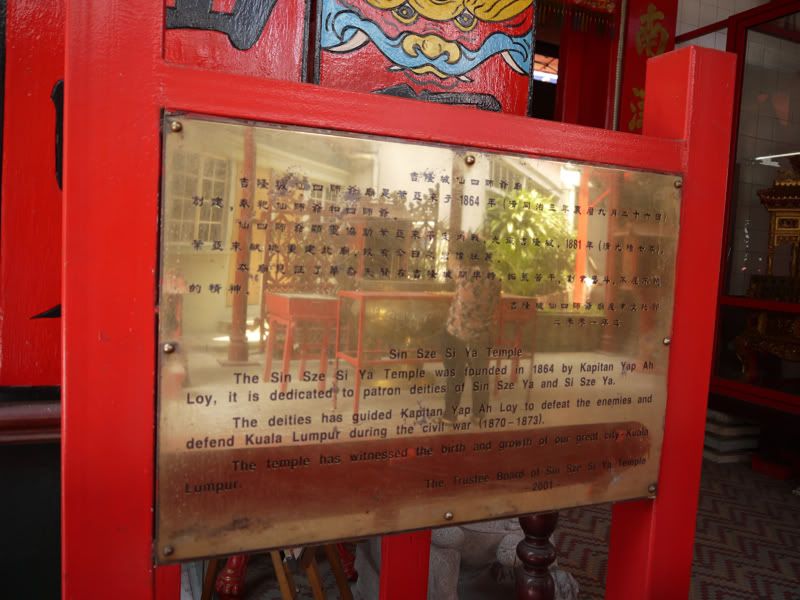 吉隆坡仙四师爷庙
吉隆坡仙四师爷庙是叶亚来于1864年(清同治三年农历九月二十六日)
创建,奉祀仙师爷和四师爷。
仙四师爷显灵协助叶亚来平定内战,光复吉隆坡,1881年(清光绪七年),
叶亚来献地重建此庙,
本庙见证了华裔先贤在吉隆坡开埠时,
的精神。
吉隆坡仙四师爷庙产业文化部
二零零一年
Sin Sze Si Ya Temple
The Sin Sze Si Ya Temple was founded in 1864 by Kapitan Yap Ah
Loy, it is dedicated to patron deities of Sin Sze Ya and Si Sze Ya.
The deities has guided Kapitan Yap Ah Loy to defeat the enemies and
defend Kuala Lumpur during the civil war (1870-1873).
The temple has witnessed the birth and growth of our great city Kuala
Lumpur.
The Trustee Board of Sin Sze Si Ya Temple
2001
南